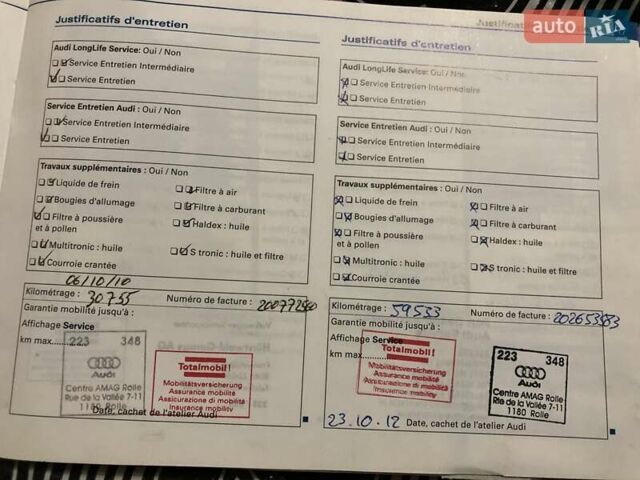 auto RIA
Justificatifs d'entretien
Audi LongLife Service: Oui / Non
Service Entretien Intermédiaire
Service Entretien
Service Entretien Audi : Oui / Non
Service Entretien Intermédiaire
Service Entretien
Travaux supplémentaires : Oui / Non
Liquide de frein
Filtre à air
Bougies d'allumage
Filtre à carburant
Filtre à poussière
et à pollen
Haldex : huile
Multitronic : huile
S tronic : huile et filtre
Courroie crantée
06/10/10
Kilométrage : 30755
Numéro de facture :
Garantie mobilité jusqu'à :
Affichage Service
km max.
223 348
Audi
Centre AMAG Rolle
Rue de la Vallée 7-11
1180 Rolle
Totalmobil!
Mobilitätsversicherung
Assurance mobilité
Assicurazione di mobilità
Insurance mobility
Date, cachet de l'atelier Audi
Justificatifs d'entretien
Audi LongLife Service: Oui / Non
Service Entretien Intermédiaire
Service Entretien
Service Entretien Audi : Oui / Non
Service Entretien Intermédiaire
Service Entretien
Travaux supplémentaires : Oui / Non
Liquide de frein
Filtre à air
Bougies d'allumage
Filtre à carburant
Filtre à poussière
et à pollen
Haldex : huile
Multitronic : huile
S tronic : huile et filtre
Courroie crantée
Kilométrage : 59533
Numéro de facture :
Garantie mobilité jusqu'à :
Affichage Service
km max.
Totalmobil!
Mobilitätsversicherung
Assurance mobilité
Assicurazione di mobilità
Insurance mobility
223 348
Audi
Centre AMAG Rolle
Rte de la Vallée 7-11
1180 Rolle
23.10.12 Date, cachet de l'atelier Audi